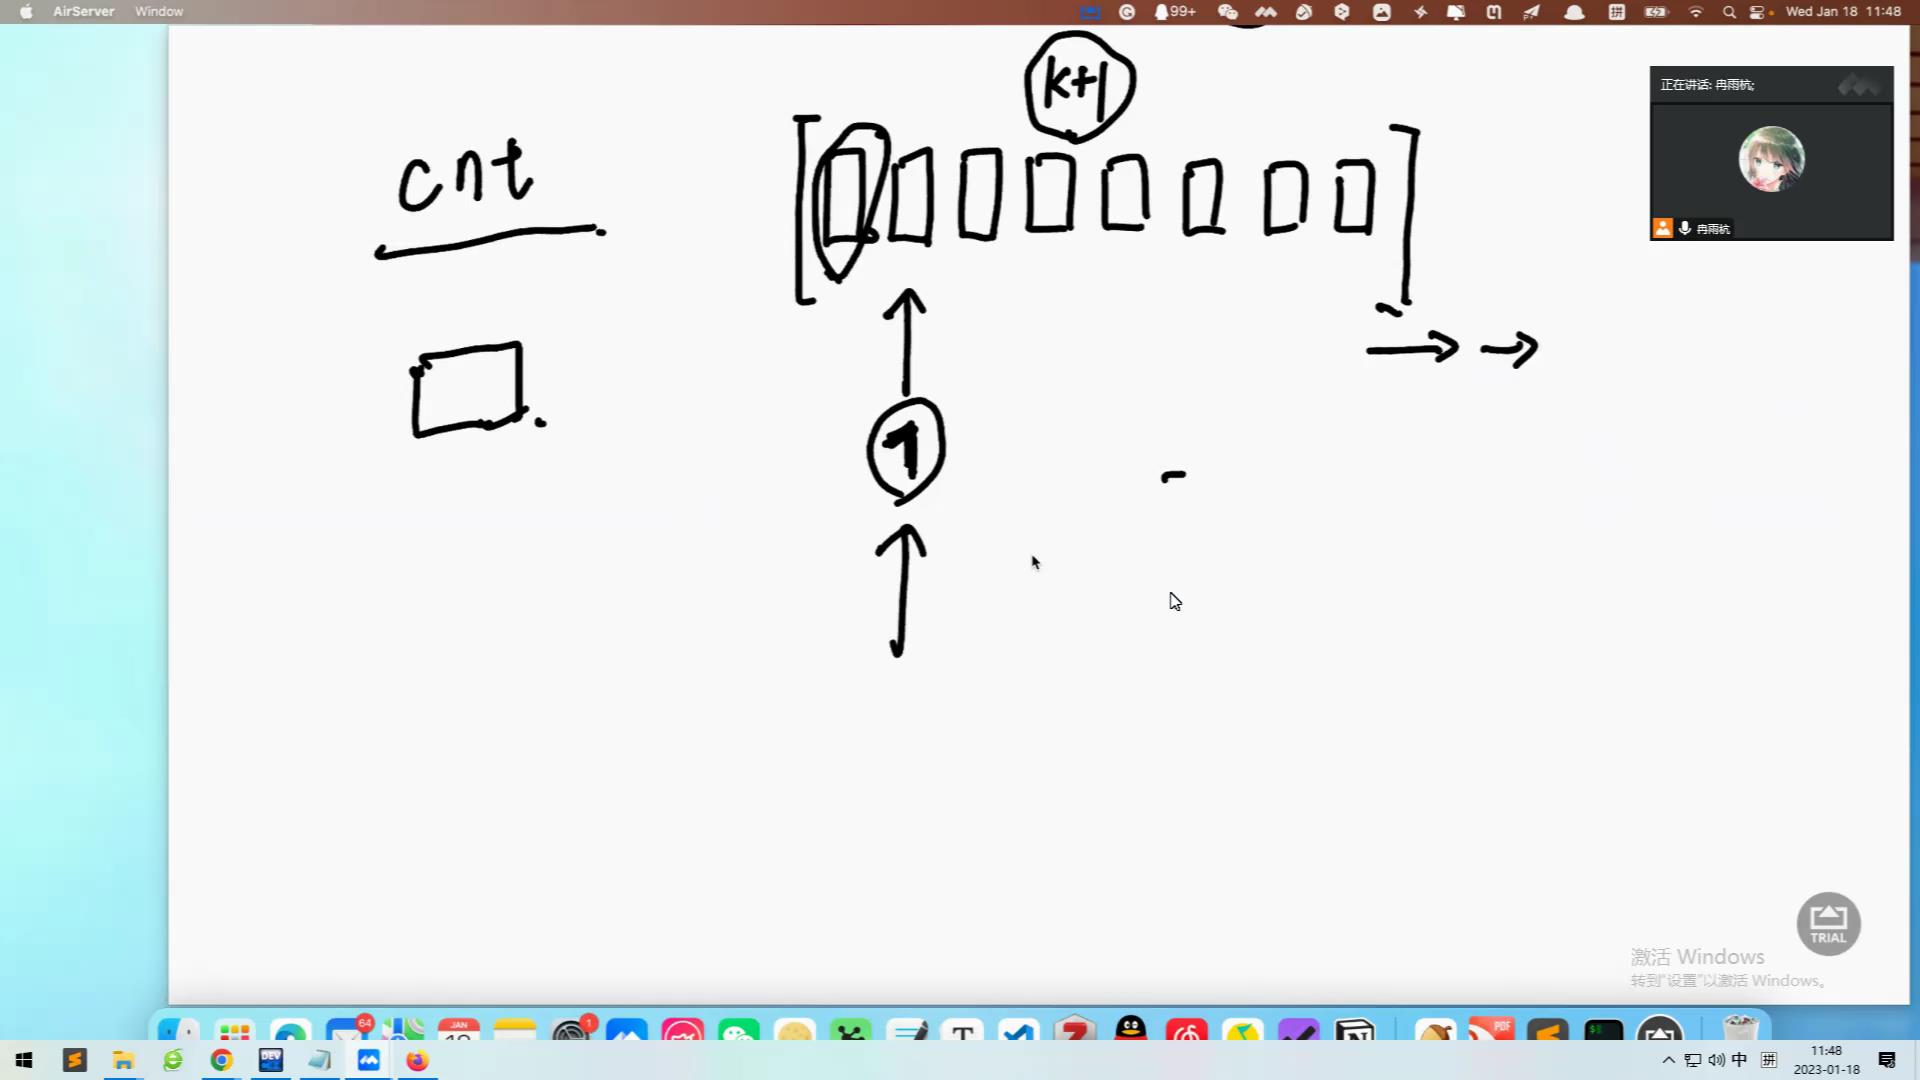 AirServer Window 99+ 拼 Wed Jan 18 11:48
k+1
正在讲话: 冉雨杭;
cnt
冉雨杭
1
TRIAL
激活 Windows
转到"设置"以激活 Windows。
64
JAN
1
PDF
$
T
DEV
中
拼
11:48
2023-01-18